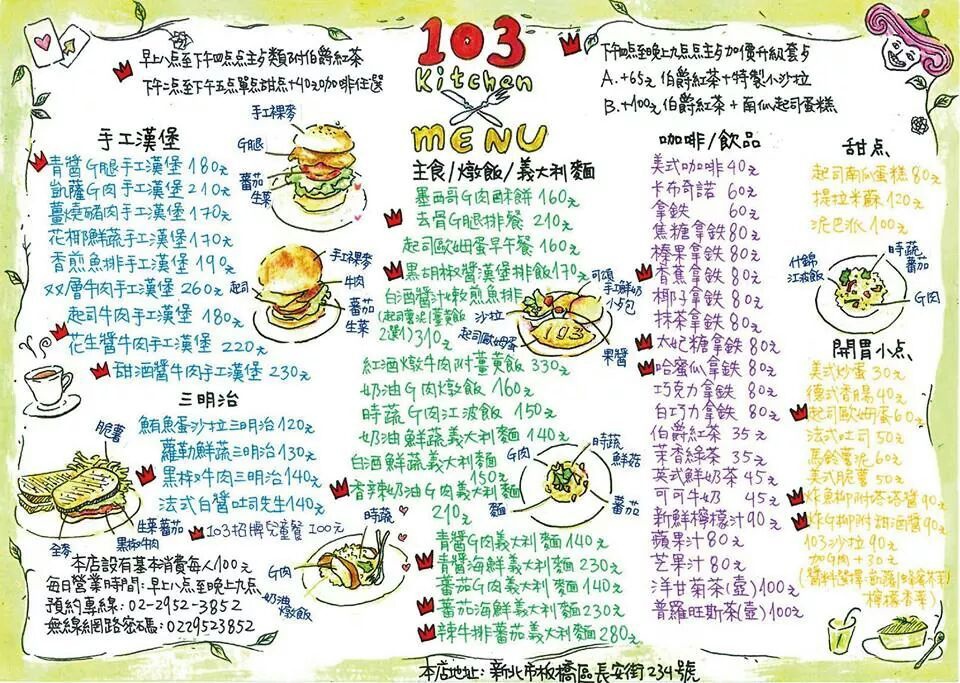 103
Kitchen
MENU
早上八點至下午四点主点類附伯爵紅茶
下午二点至下午五点單点甜点+40元咖啡任選
下午四点至晚上九点主点加價升級套点
A. +65元 伯爵紅茶+特製小沙拉
B. +100元 伯爵紅茶+南瓜起司蛋糕
手工漢堡
青醬G腿手工漢堡 180元
凱薩G肉手工漢堡 210元
薑燒豬肉手工漢堡 170元
花椰鮮蔬手工漢堡 170元
香煎魚排手工漢堡 190元
双層牛肉手工漢堡 260元
起司牛肉手工漢堡 180元
花生醬牛肉手工漢堡 220元
甜酒醬牛肉手工漢堡 230元
手工裸麥
G腿
蕃茄
生菜
手工裸麥
牛肉
起司
蕃茄
生菜
三明治
鮪魚蛋沙拉三明治 120元
蘿勒鮮蔬三明治 130元
黑椒牛肉三明治 140元
法式白醬吐司先生 140元
103招牌兒童餐 100元
脆薯
生菜蕃茄
黑椒牛肉
全麥
時蔬
G肉
奶油燉飯
本店設有基本消費每人100元
每日營業時間:早上八点至晚上九点
預約專線: 02-2952-3852
無線網路密碼: 0229523852
主食/燉飯/義大利麵
墨西哥G肉酥餅 160元
去骨G腿排餐 210元
起司歐姆蛋早午餐 160元
黑胡椒醬漢堡排飯 170元
白酒醬汁嫩煎魚排
2選1) 310元
紅酒燉牛肉附薑黄飯 330元
奶油G肉燉飯 160元
時蔬G肉江波飯 150元
奶油鮮蔬義大利麵 140元
白酒鮮蔬義大利麵
150元
香辣奶油G肉義大利麵
210元
青醬G肉義大利麵 140元
青醬海鮮義大利麵 230元
蕃茄G肉義大利麵 140元
蕃茄海鮮義大利麵 230元
辣牛排蕃茄義大利麵 280元
可頌
手工鮮奶
小么包
沙拉
103
起司歐姆蛋
果醬
G肉
時蔬
鮮菇
麵
蕃茄
咖啡/飲品
美式咖啡 40元
卡布奇諾 60元
拿鉄 60元
焦糖拿鉄 80元
榛果拿鉄 80元
香蕉拿鉄 80元
椰子拿鉄 80元
抹茶拿鉄 80元
太妃糖拿鉄 80元
哈蜜瓜拿鉄 80元
巧克力拿鉄 80元
白巧力拿鉄 80元
伯爵紅茶 35元
茉香綠茶 35元
英式鮮奶茶 45元
可可牛奶 45元
新鮮檸檬汁 90元
蘋果汁 80元
芒果汁 80元
洋甘菊茶(壺) 100元
普羅旺斯茶(壺) 100元
甜点
起司南瓜蛋糕 80元
提拉米蘇 120元
泥巴派 100元
什錦
江波飯
時蔬
蕃茄
G肉
開胃小点
美式炒蛋 30元
德式香腸 40元
起司歐姆蛋 60元
法式吐司 50元
馬鈴薯泥 60元
美式脆薯 50元
炸魚柳附塔塔醬 90元
炸G柳附甜酒醬 90元
103沙拉 90元
加G肉 +30元
本店地址: 新北市板橋區長安街234號